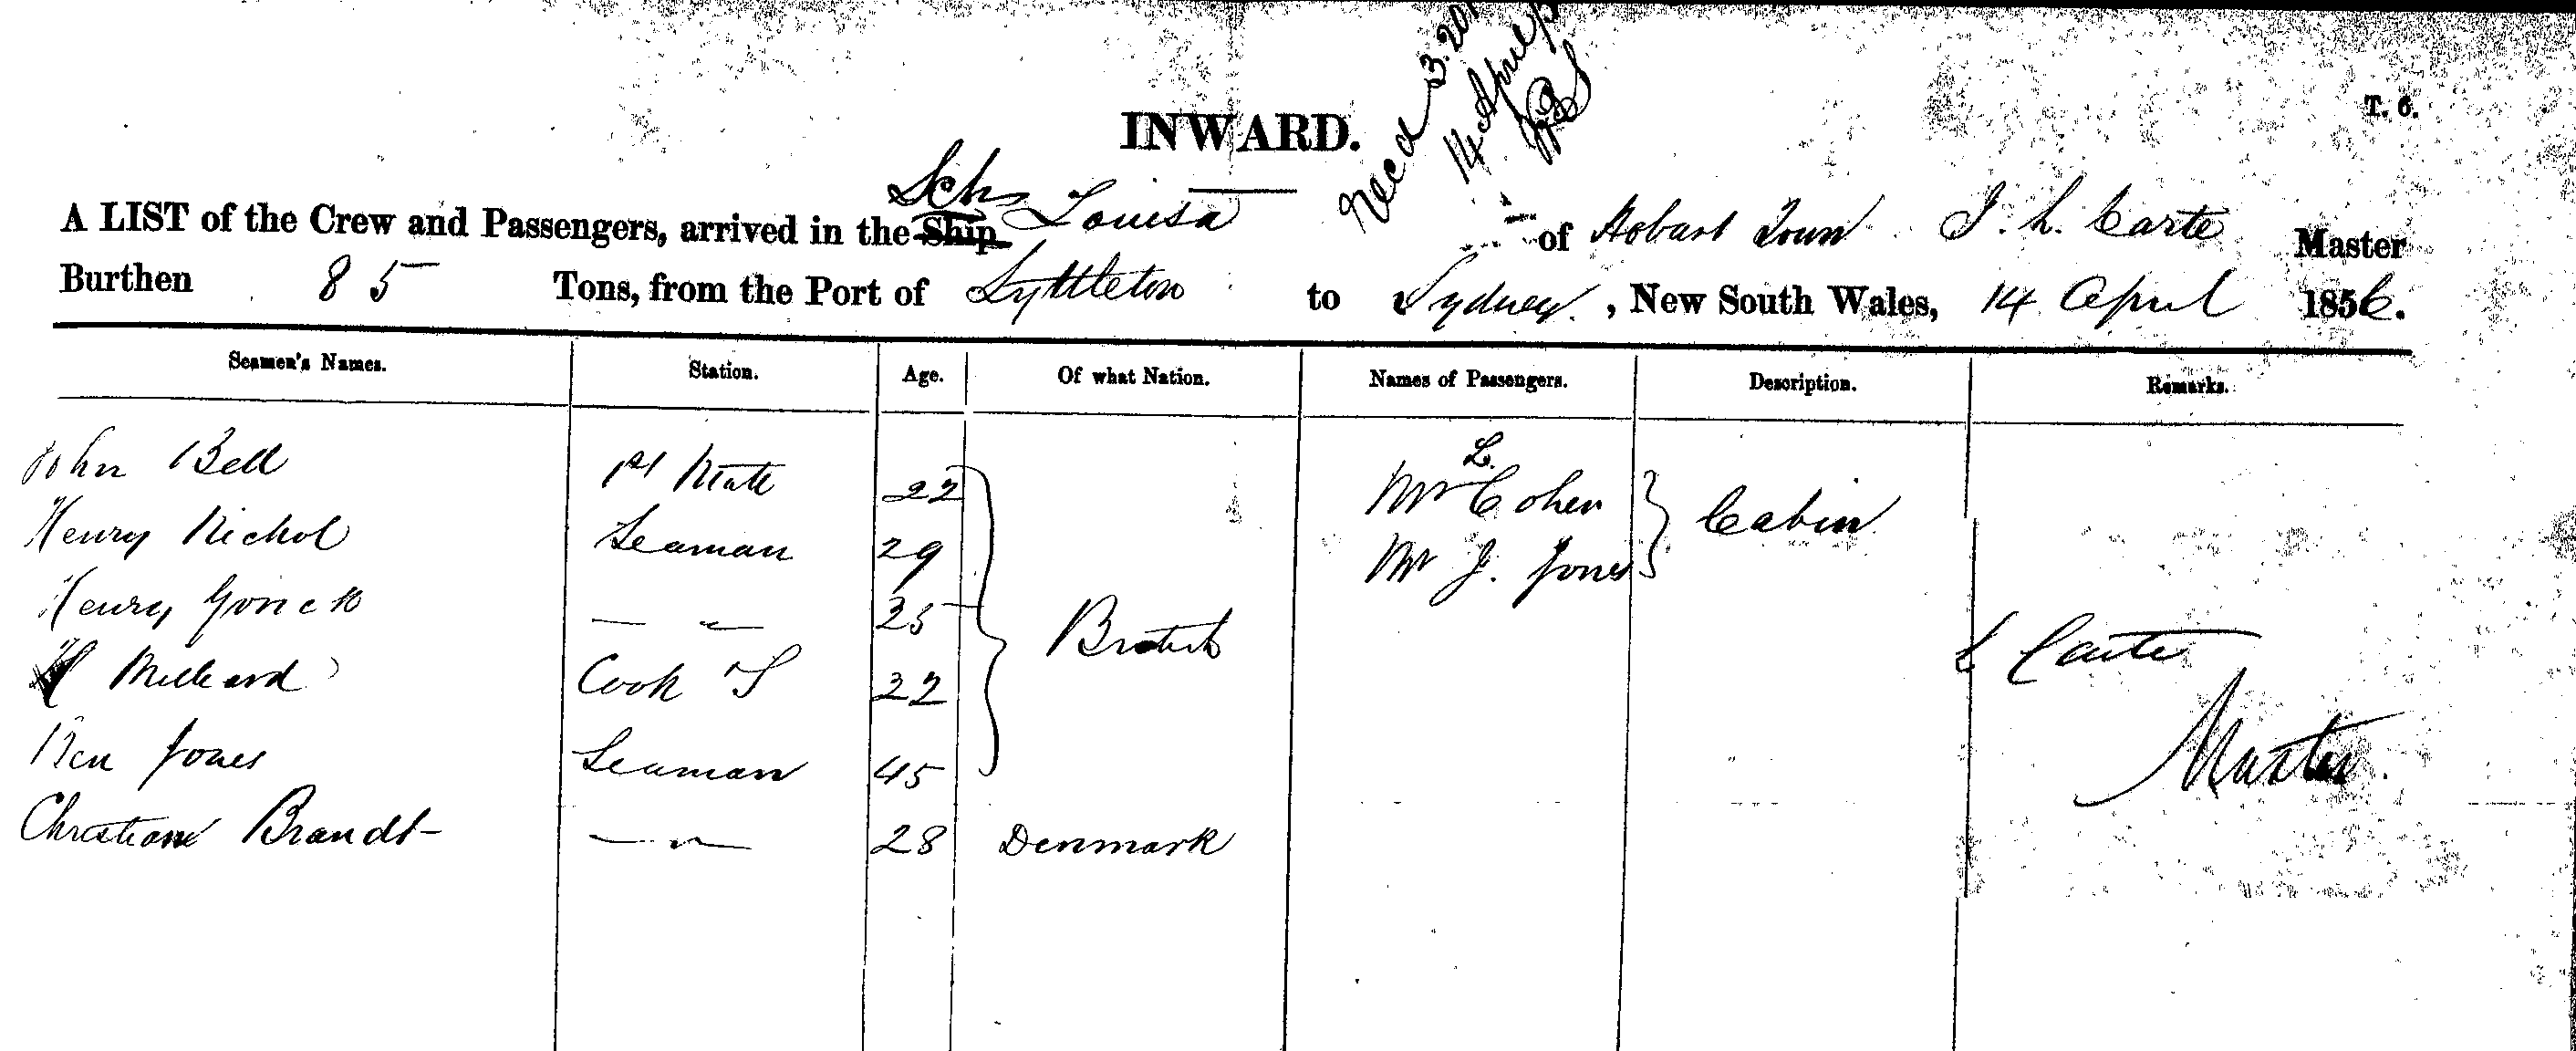 Recd 3.20
14 April
INWARD.
T. 6.
A LIST of the Crew and Passengers, arrived in the Ship Schr Louisa of Hobart Town J. L. Carte Master
Burthen 85 Tons, from the Port of Lyttleton to Sydney, New South Wales, 14 April 1856.
Seamen's Names. Station. Age. Of what Nation. Names of Passengers. Description. Remarks.
John Bell 1st Mate 22 British Mr L. Cohen Cabin
Henry Nichol Seaman 29 Mr J. Jones
Henry 25
Millard Cook S 32 Carte
Ben Jones Seaman 45 Master
Christian Brandt — " — 28 Denmark